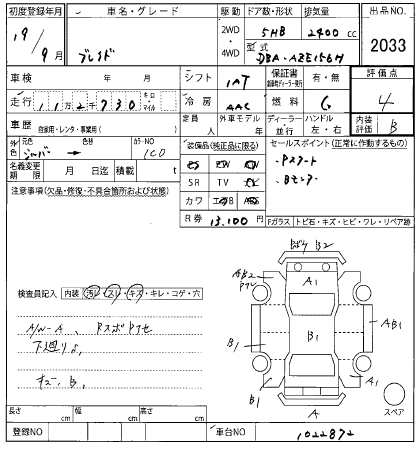 初度登録年月 車名・グレード 駆動 ドア数・形状 排気量 出品NO.
19年 9月 ブレイド 2WD・4WD 5HB 2400 cc 2033
型式 DBA-AZE156H
車検 年 月 シフト IAT 保証書 有・無 評価点
走行 112,730 キロ・マイル 冷房 AAC 燃料 G 4
車歴 自家用・レンタ・事業用( ) 定員 人 外車モデル 年 ディーラー・並行 ハンドル 左・右 内装評価 B
外色 元色 シルバー → 色替 カラーNO 1C0
名義変更期限 月 日迄 積載 t
装備品(純正品に限る) セールスポイント(正常に作動するもの)
SR TV
カワ
・Pスタート
・Bモニター
注意事項(欠品・修復・不具合箇所および状態)
R券 13,100円
Fガラス トビ石・キズ・ヒビ・ワレ・リペア跡
検査員記入 内装 汚レ・スレ・キズ・キレ・コゲ・穴
A/W-A、
下廻りS,
キズ、B,
Bガリ B2
AB2
A1
B1
B1
AB1
B1
A1
A
スペア
長さ cm 幅 cm 高さ cm
登録NO 車台NO 1022872